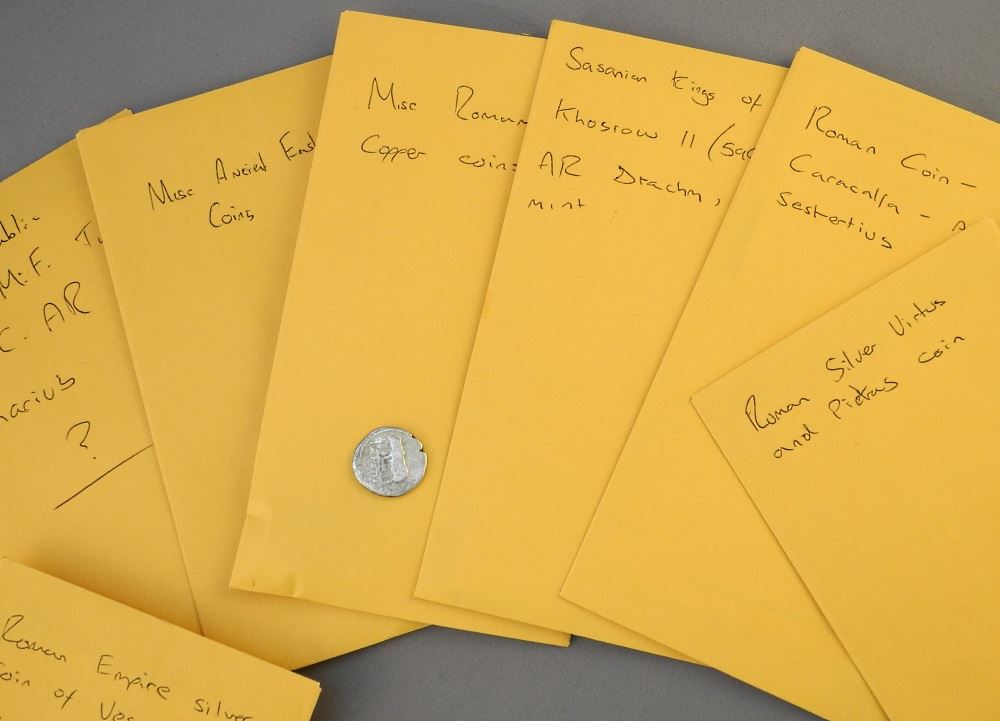 M.F. Tu
C. AR
?
Misc Ancient East
Coins
Misc Roman
Copper coins
Sasanian Kings of
Khosrow II (Sac
AR Drachm,
mint
Roman Coin -
Caracalla -
Sestertius
Roman Silver Virtus
and Pietas coin
Roman Empire silver
coin of Ves